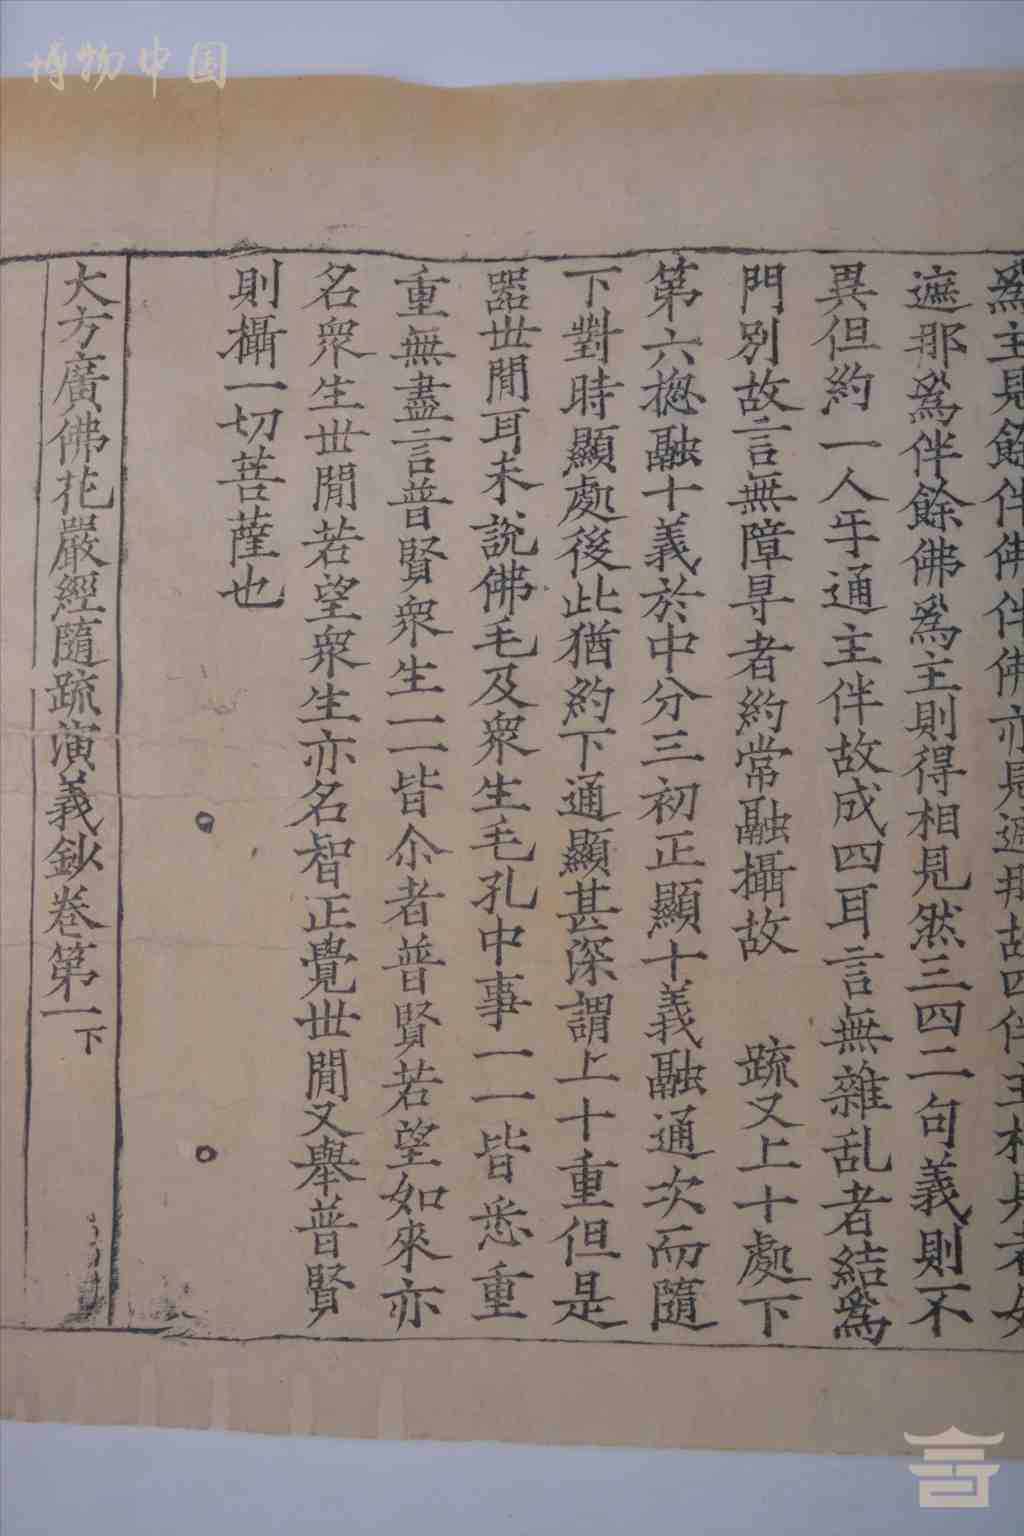 博物中国
爲主見餘伴佛伴佛亦見遮那故四伴主相見者如
遮那爲伴餘佛爲主則得相見然三四二句義則不
異但約一人乎通主伴故成四耳言無雜乱者結爲
門別故言無障㝵者約常融攝故　疏又上十處下
第六揔融十義於中分三初正顯十義融通次而隨
下對時顯處後此猶約下通顯甚深謂上十重但是
器世間耳未說佛毛及衆生毛孔中事一一皆悉重
重無盡言普賢衆生一一皆尒者普賢若望如來亦
名衆生世間若望衆生亦名智正覺世間又舉普賢
則攝一切菩薩也
大方廣佛花嚴經隨疏演義鈔卷第一下